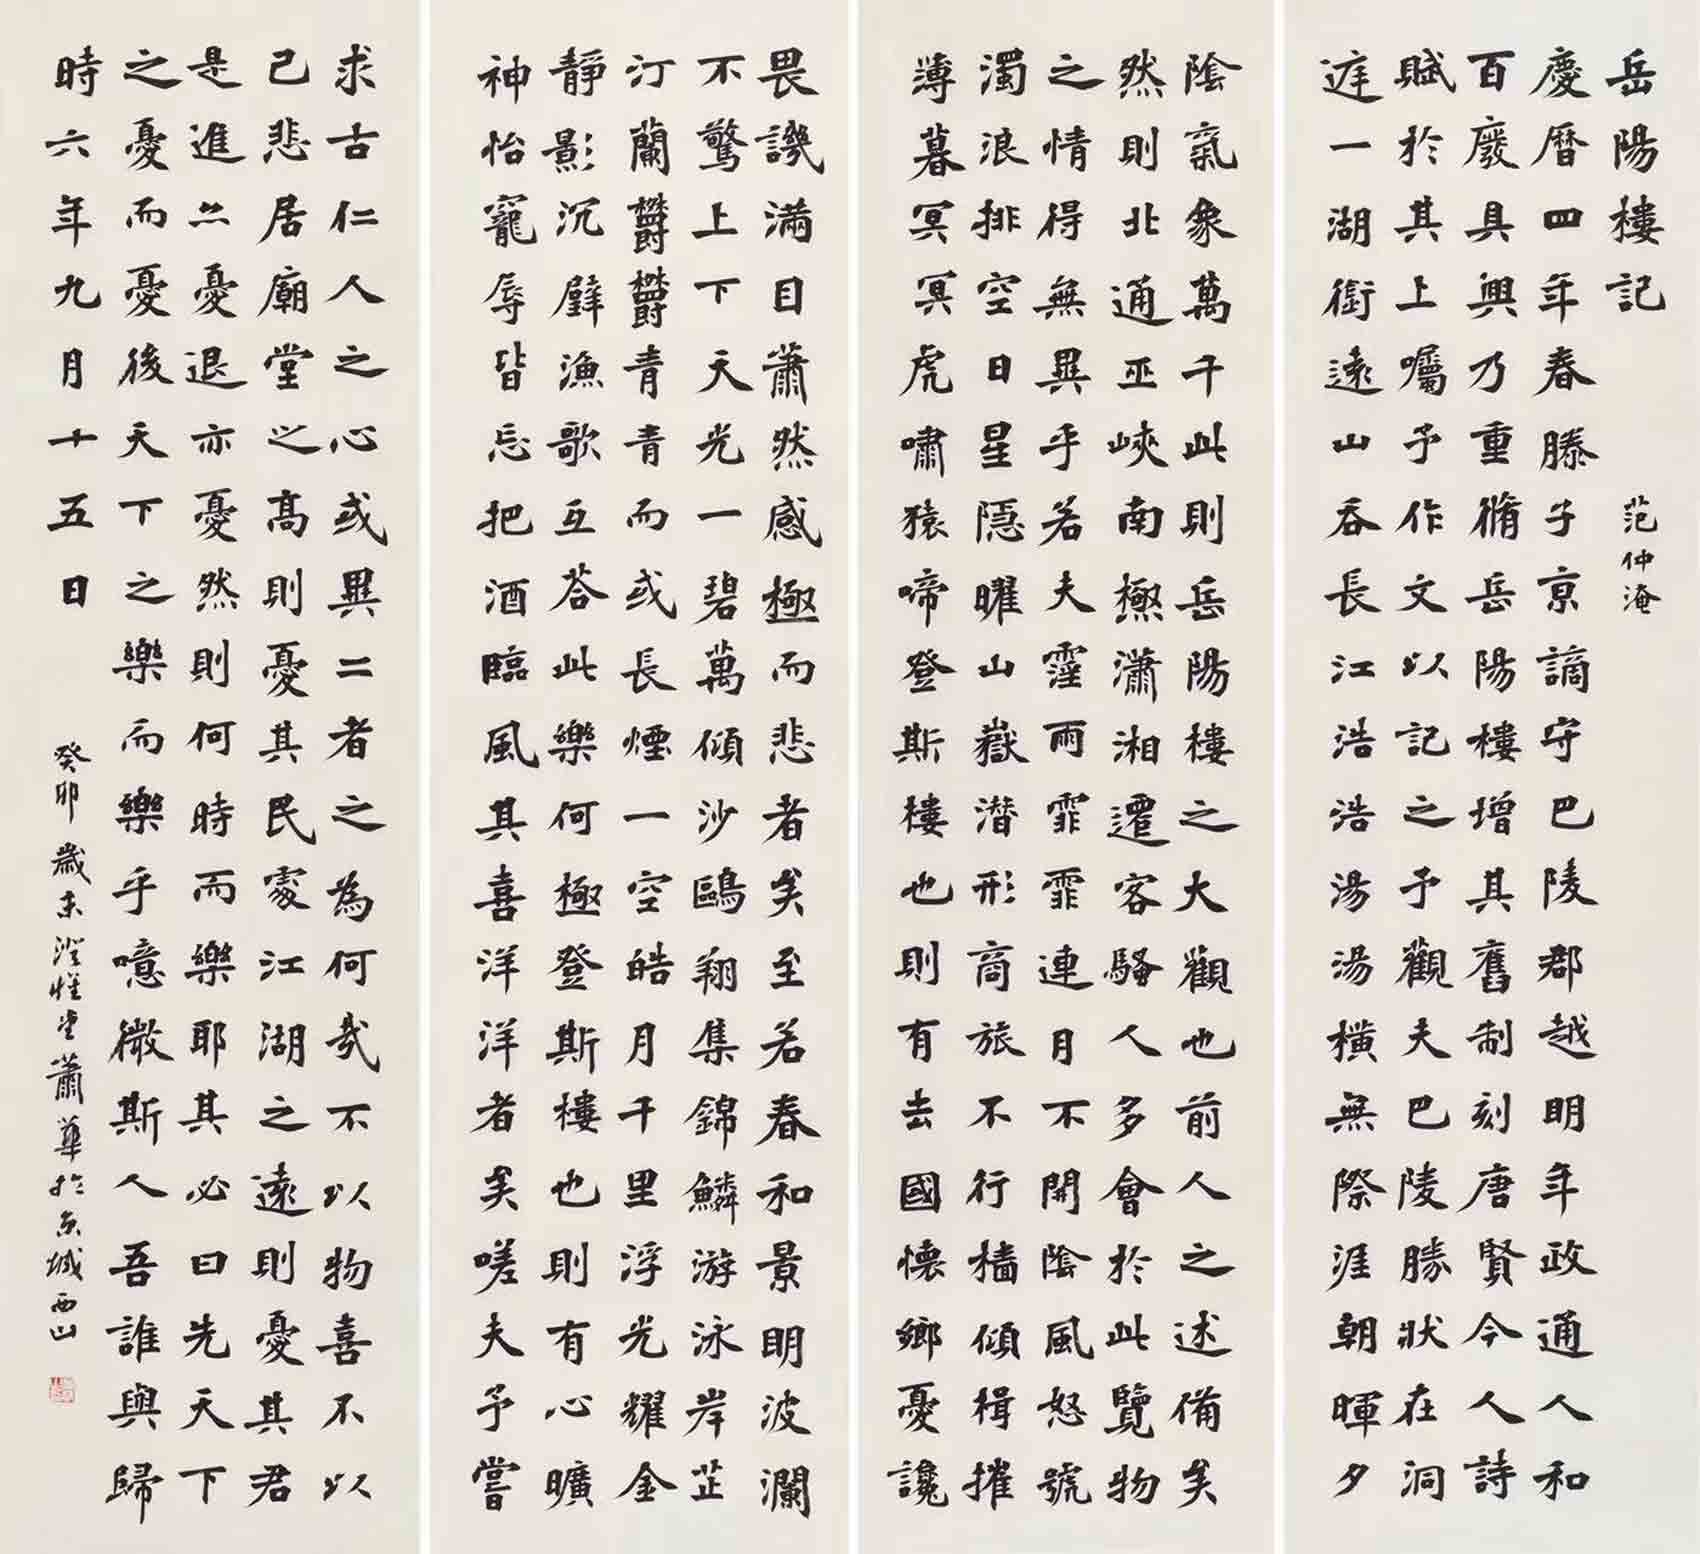 岳陽樓記 范仲淹
慶曆四年春滕子京謫守巴陵郡越明年政通人和
百廢具興乃重脩岳陽樓增其舊制刻唐賢今人詩
賦於其上囑予作文以記之予觀夫巴陵勝狀在洞
庭一湖銜遠山吞長江浩浩湯湯橫無際涯朝暉夕
陰氣象萬千此則岳陽樓之大觀也前人之述備矣
然則北通巫峽南極瀟湘遷客騷人多會於此覽物
之情得無異乎若夫霪雨霏霏連月不開陰風怒號
濁浪排空日星隱曜山嶽潛形商旅不行檣傾楫摧
薄暮冥冥虎嘯猿啼登斯樓也則有去國懷鄉憂讒
畏譏滿目蕭然感極而悲者矣至若春和景明波瀾
不驚上下天光一碧萬傾沙鷗翔集錦鱗游泳岸芷
汀蘭鬱鬱青青而或長煙一空皓月千里浮光耀金
靜影沉璧漁歌互荅此樂何極登斯樓也則有心曠
神怡寵辱皆忘把酒臨風其喜洋洋者矣嗟夫予嘗
求古仁人之心或異二者之為何哉不以物喜不以
己悲居廟堂之高則憂其民處江湖之遠則憂其君
是進亦憂退亦憂然則何時而樂耶其必曰先天下
之憂而憂後天下之樂而樂乎噫微斯人吾誰與歸
時六年九月十五日 癸卯歲末澄惟堂蕭華於京城西山